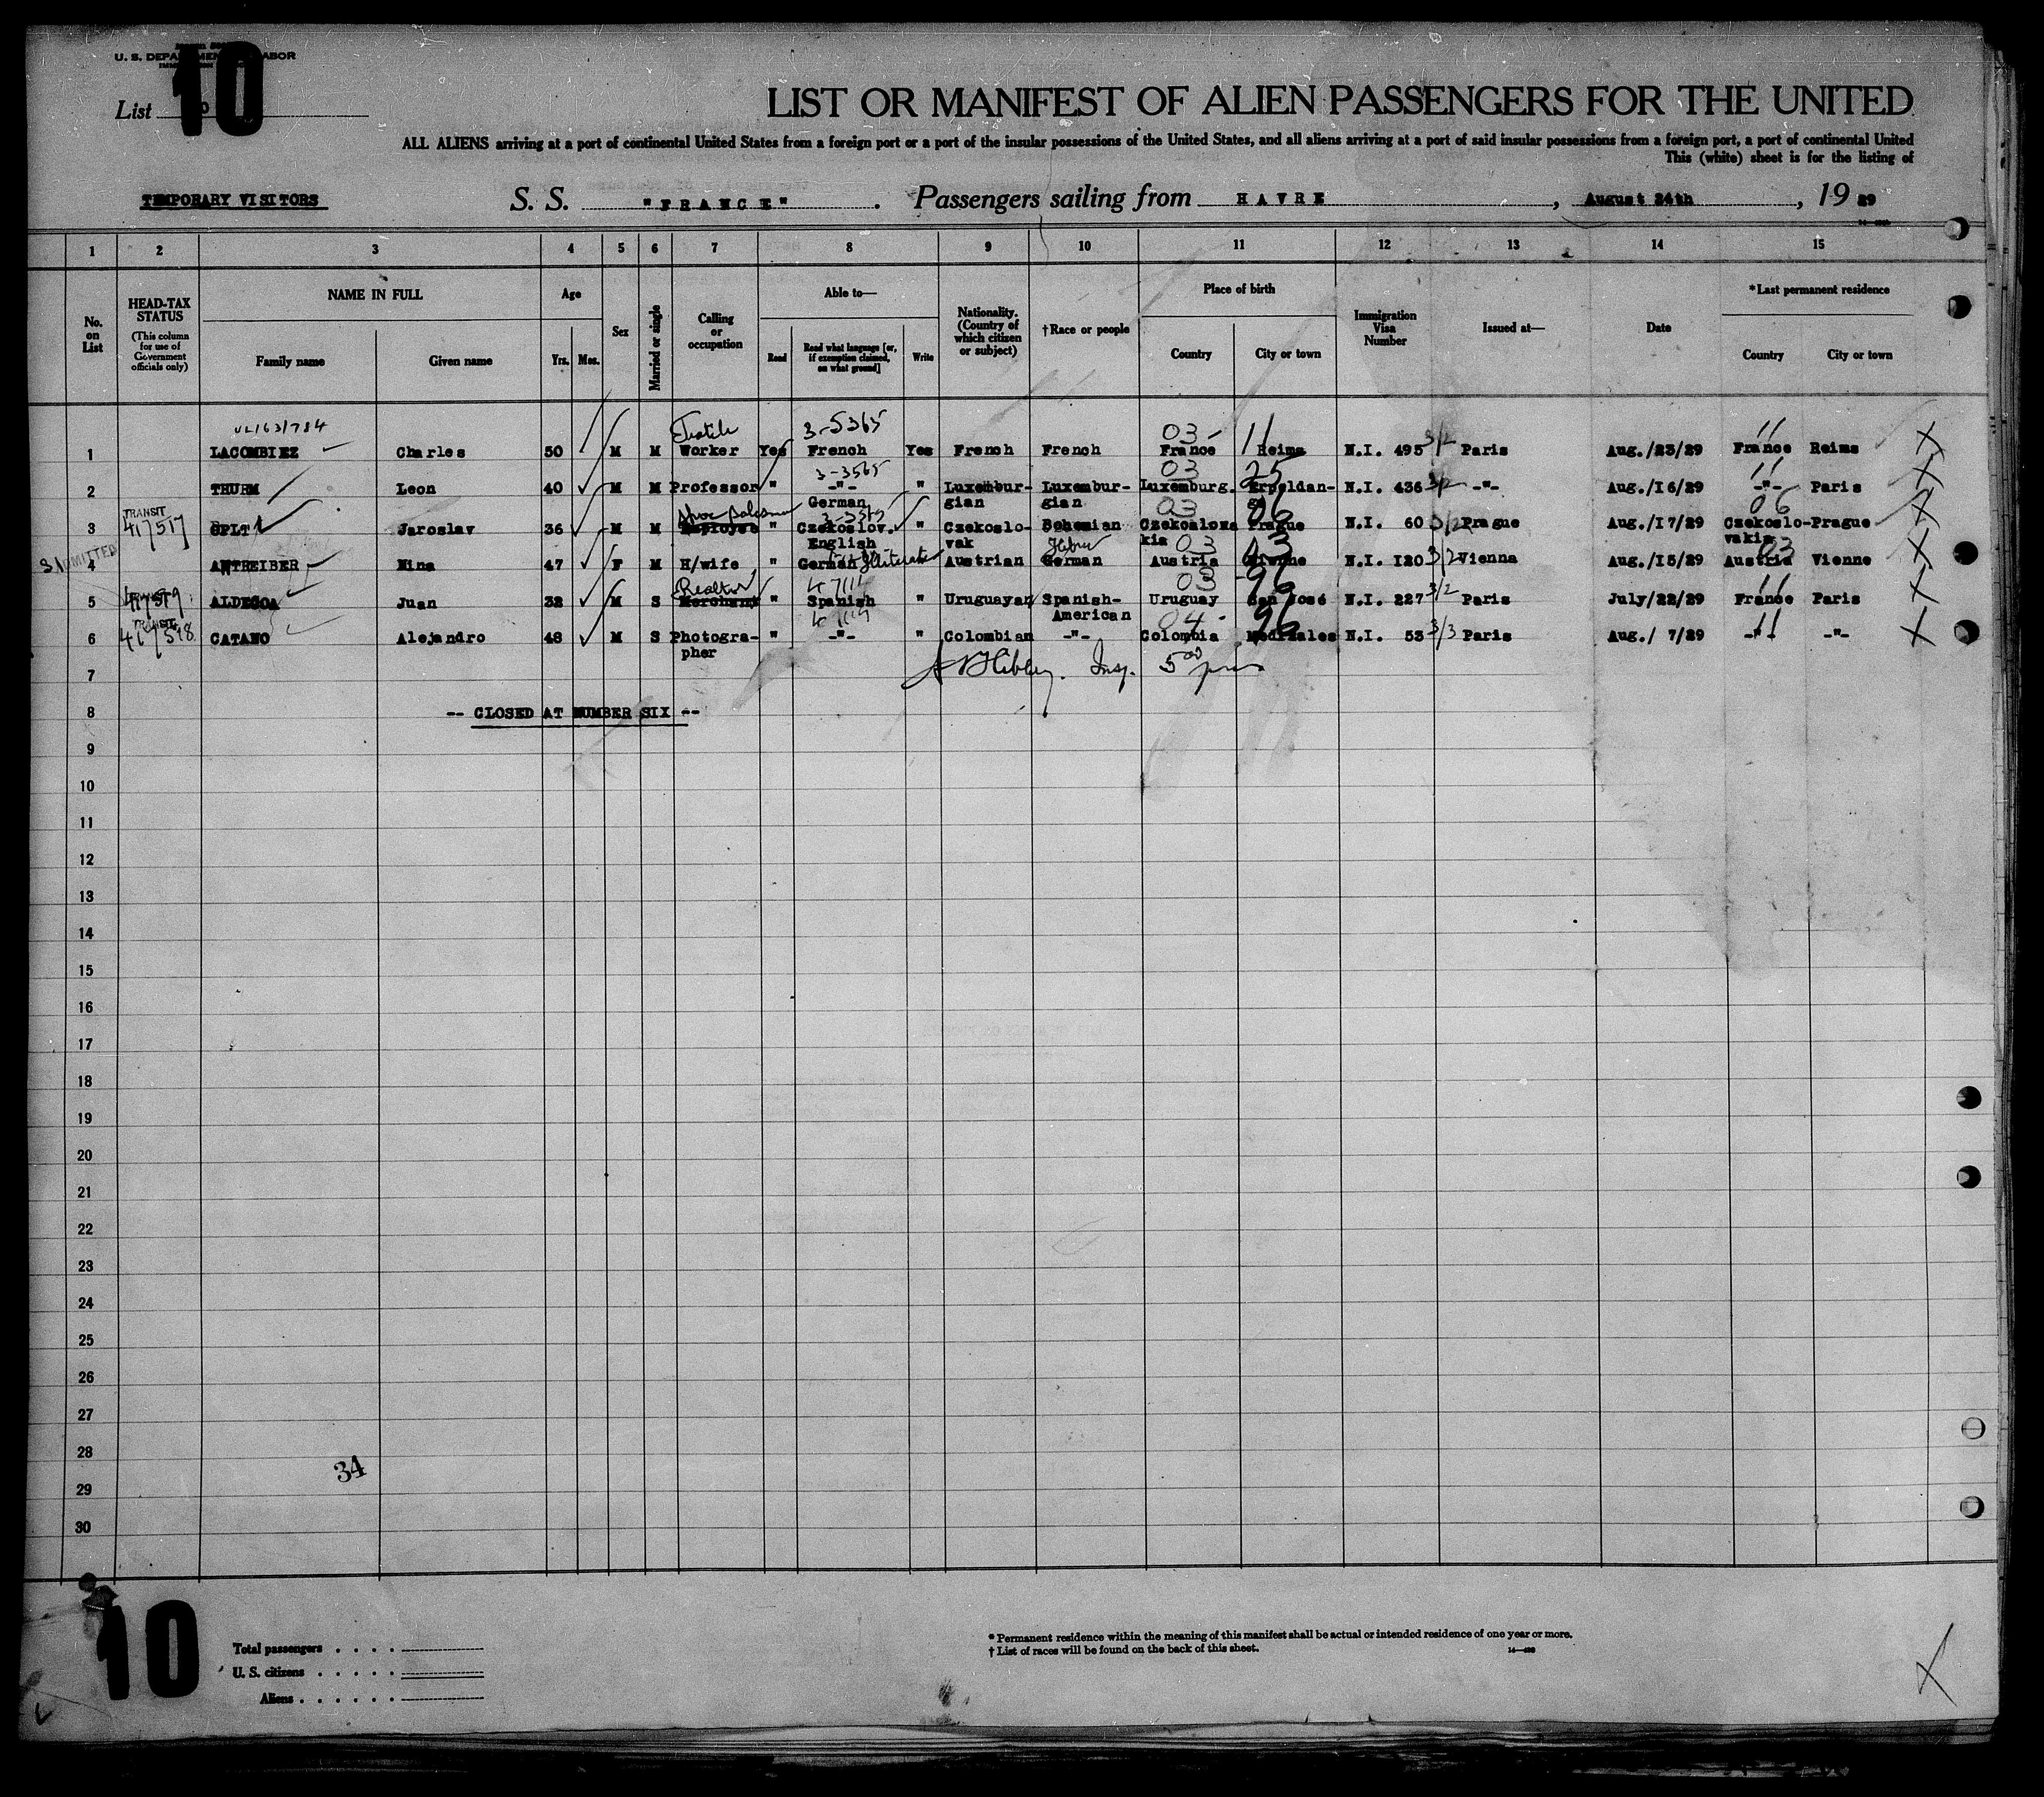 U. S. DEPARTMENT OF LABOR
10
List
LIST OR MANIFEST OF ALIEN PASSENGERS FOR THE UNITED
ALL ALIENS arriving at a port of continental United States from a foreign port or a port of the insular possessions of the United States, and all aliens arriving at a port of said insular possessions from a foreign port, a port of continental United
This (white) sheet is for the listing of
TEMPORARY VISITORS S. S. "FRANCE". Passengers sailing from HAVRE, August 24th, 19 29
1 2 3 4 5 6 7 8 9 10 11 12 13 14 15
No. on List
HEAD-TAX STATUS (This column for use of Government officials only)
NAME IN FULL Family name Given name
Age Yrs. Mos.
Sex
Married or single
Calling or occupation
Able to— Read Read what language [or, if exemption claimed, on what ground] Write
Nationality. (Country of which citizen or subject)
† Race or people
Place of birth Country City or town
Immigration Visa Number
Issued at—
Date
* Last permanent residence Country City or town
3-5365 03 11 11
1 LACOMBIEZ Charles 50 M M Worker Yes French Yes French French France Reims N.I. 495 3/2 Paris Aug./23/29 France Reims X
3-3565 03 25 11
2 THURM Leon 40 M M Professor " -"- " Luxembur- Luxembur- Luxemburg. Erpeldan- N.I. 436 3/2 -"- Aug./16/29 -"- Paris X
German gian gian
TRANSIT Shoe Salesman 03 06 06
3 417517 OPLT Jaroslav 36 M M Employee " Czekoslov. " Czekoslo- Bohemian Czekoslova Prague N.I. 60 3/2 Prague Aug./17/29 Czekoslo- Prague X
English vak Hebrew kia 03 vakia 03
4 ANTREIBER Mina 47 F M H/wife " German Illiterate Austrian German Austria N.I. 120 3/2 Vienna Aug./15/29 Austria Vienne X
Realtor 03 96 11
5 ALDECOA Juan 32 M S Merchant " Spanish " Uruguayan Spanish- Uruguay San José N.I. 227 3/2 Paris July/22/29 France Paris X
American
TRANSIT 04 96 11
6 417518 CATANO Alejandro 48 M S Photogra- " -"- " Colombian -"- Colombia N.I. 53 3/3 Paris Aug./ 7/29 -"- -"- X
pher
7 Insp.
8 -- CLOSED AT NUMBER SIX --
9
10
11
12
13
14
15
16
17
18
19
20
21
22
23
24
25
26
27
28
34
29
30
10
Total passengers . . . .
U. S. citizens . . . . .
Aliens . . . . . .
* Permanent residence within the meaning of this manifest shall be actual or intended residence of one year or more.
† List of races will be found on the back of this sheet.